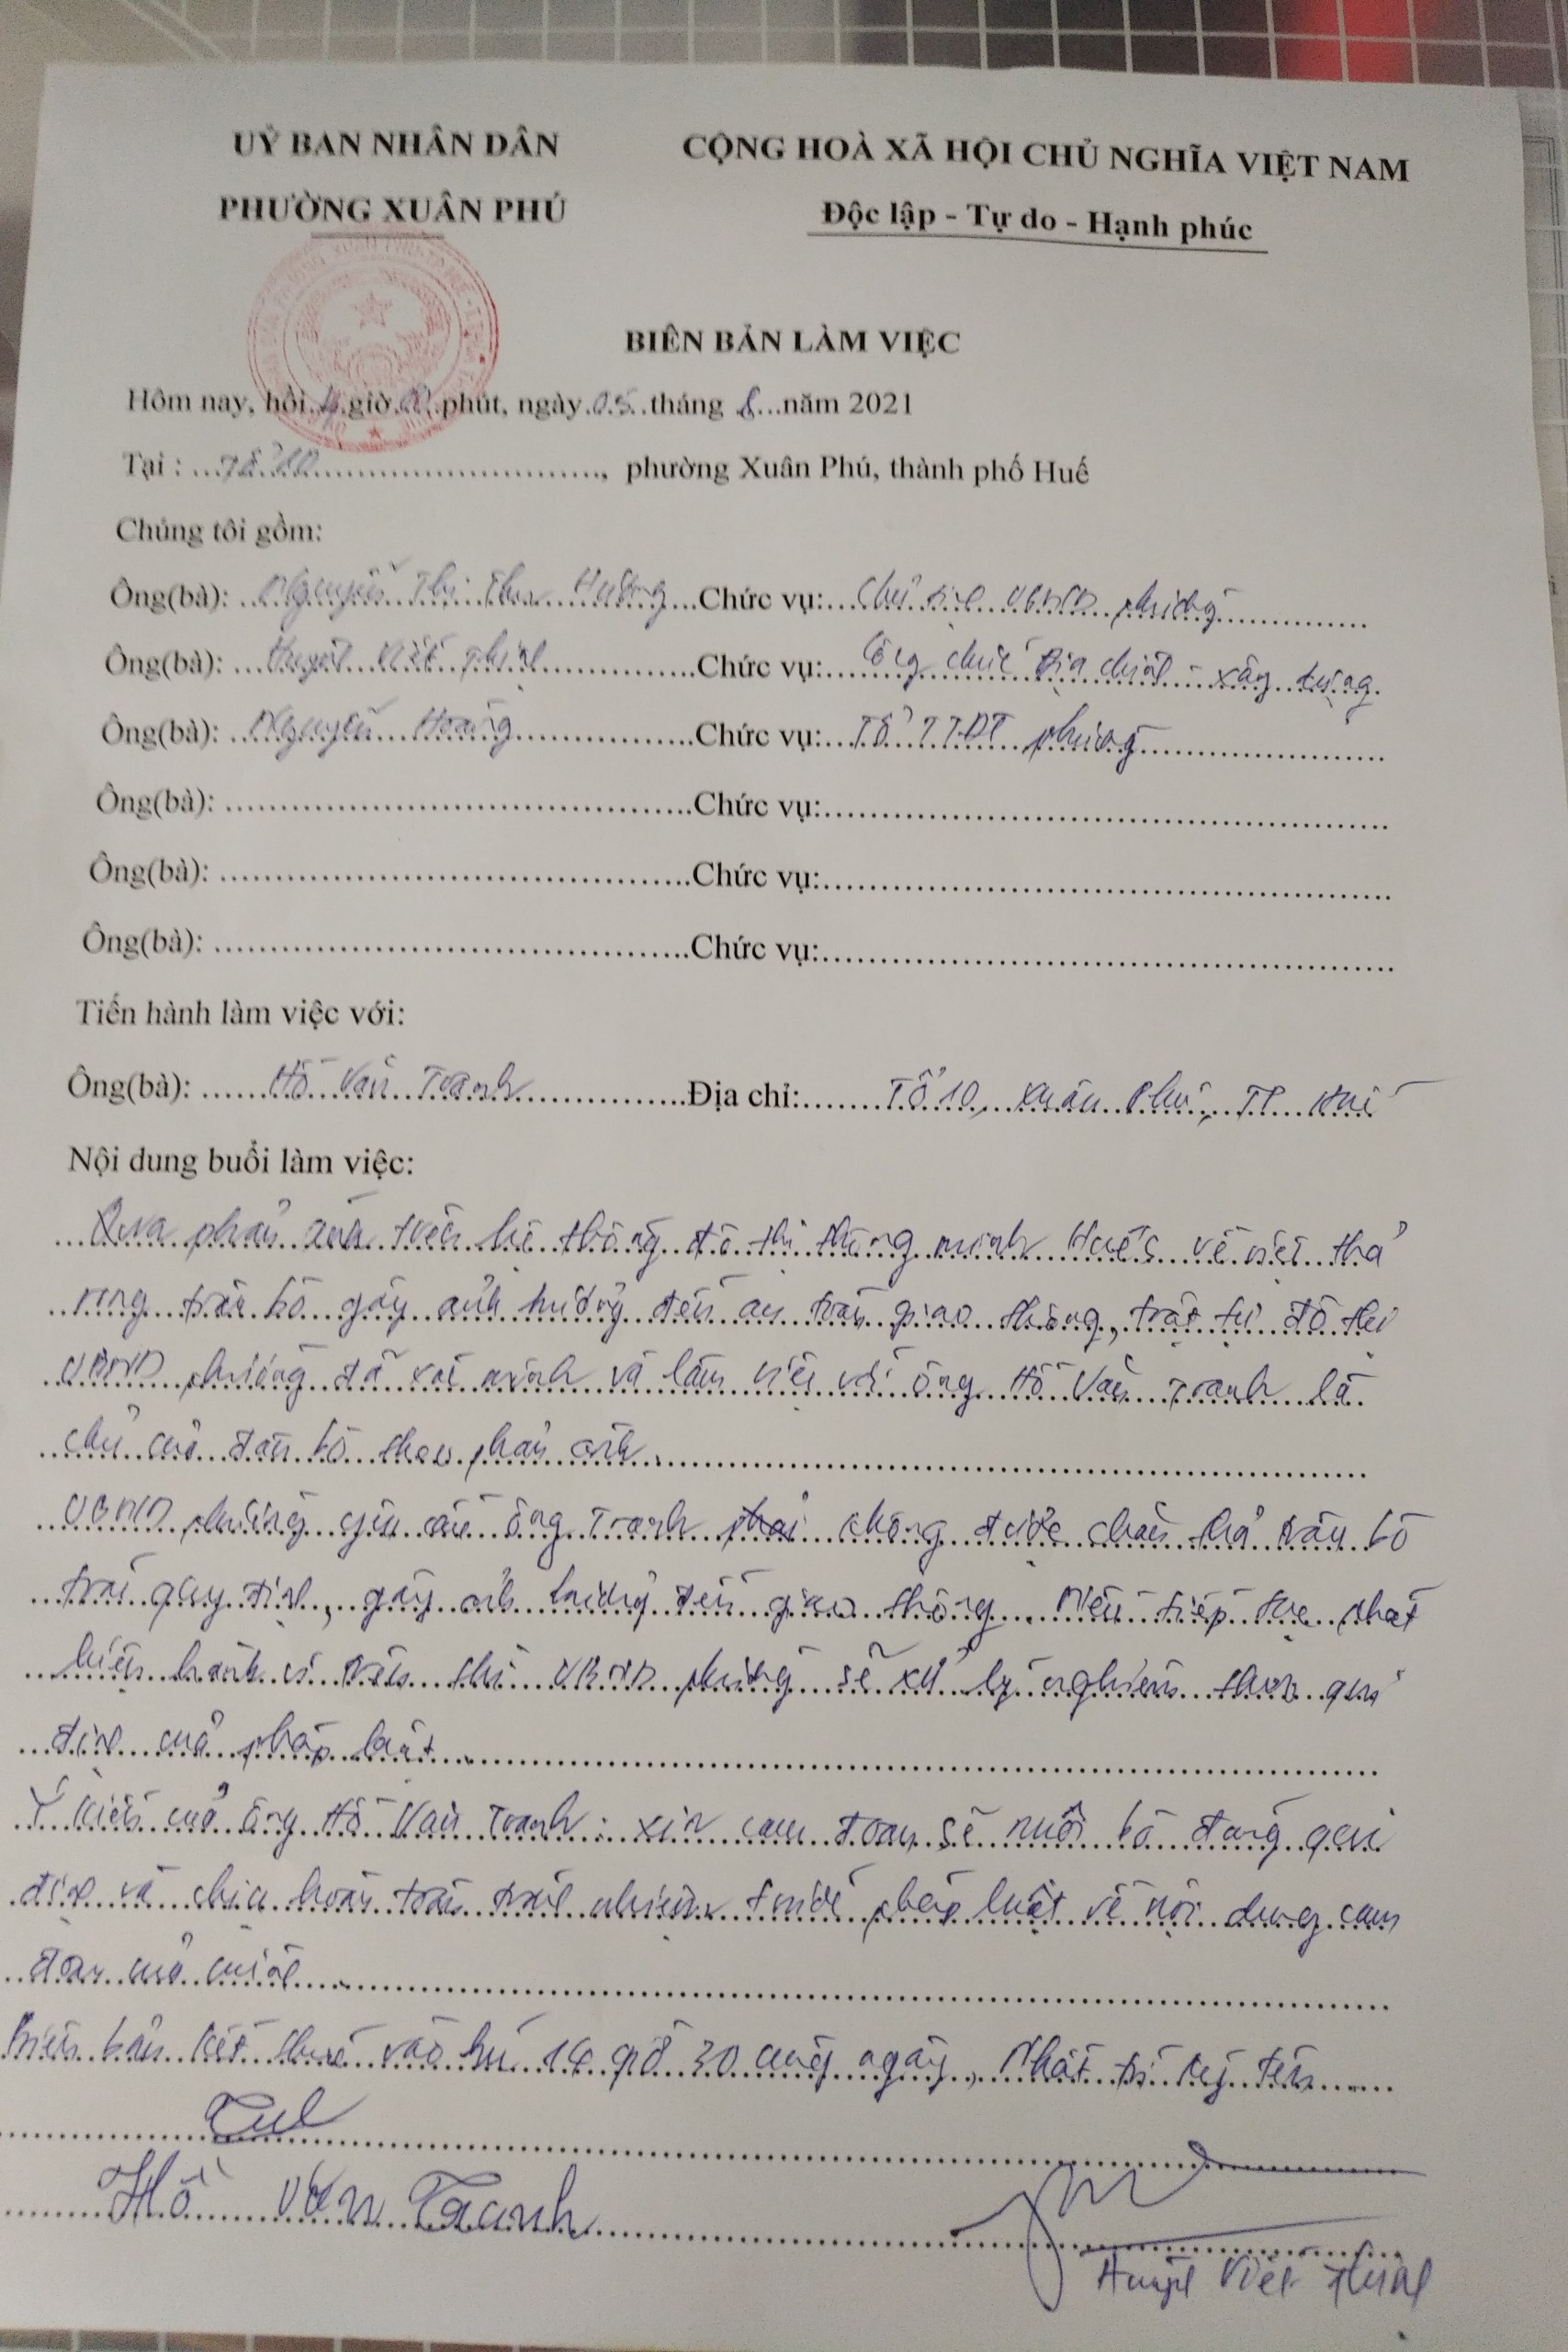 UỶ BAN NHÂN DÂN
PHƯỜNG XUÂN PHÚ
CỘNG HOÀ XÃ HỘI CHỦ NGHĨA VIỆT NAM
Độc lập - Tự do - Hạnh phúc
BIÊN BẢN LÀM VIỆC
Hôm nay, hồi giờ phút, ngày 05 tháng 8 năm 2021
Tại : Tổ 10, phường Xuân Phú, thành phố Huế
Chúng tôi gồm:
Ông(bà): Nguyễn Thị Thu Hương Chức vụ: Chủ tịch UBND phường
Ông(bà): Huỳnh Viết Chức vụ: Công chức Địa chính - xây dựng
Ông(bà): Nguyễn Hoàng Chức vụ: Tổ TTĐT phường
Ông(bà): Chức vụ:
Ông(bà): Chức vụ:
Ông(bà): Chức vụ:
Tiến hành làm việc với:
Ông(bà): Hồ Văn Tranh Địa chỉ: Tổ 10, Xuân Phú, TP Huế
Nội dung buổi làm việc:
Qua phản ánh trên hệ thống đô thị thông minh HueS về việc thả
rong trâu bò gây ảnh hưởng đến an toàn giao thông, trật tự đô thị
UBND phường đã xác minh và làm việc với ông Hồ Văn Tranh là
chủ của đàn bò theo phản ánh.
UBND phường yêu cầu ông Tranh không được chăn thả trâu bò
trái quy định, gây ảnh hưởng đến giao thông. Nếu tiếp tục phát
hiện hành vi trên thì UBND phường sẽ xử lý nghiêm theo qui
định của pháp luật.
Ý kiến của ông Hồ Văn Tranh: xin cam đoan sẽ nuôi bò đúng qui
định và chịu hoàn toàn trách nhiệm trước pháp luật về nội dung cam
đoan của mình.
Biên bản kết thúc vào lúc 16 giờ 30 cùng ngày, nhất trí ký tên
Hồ Văn Tranh
Huỳnh Viết